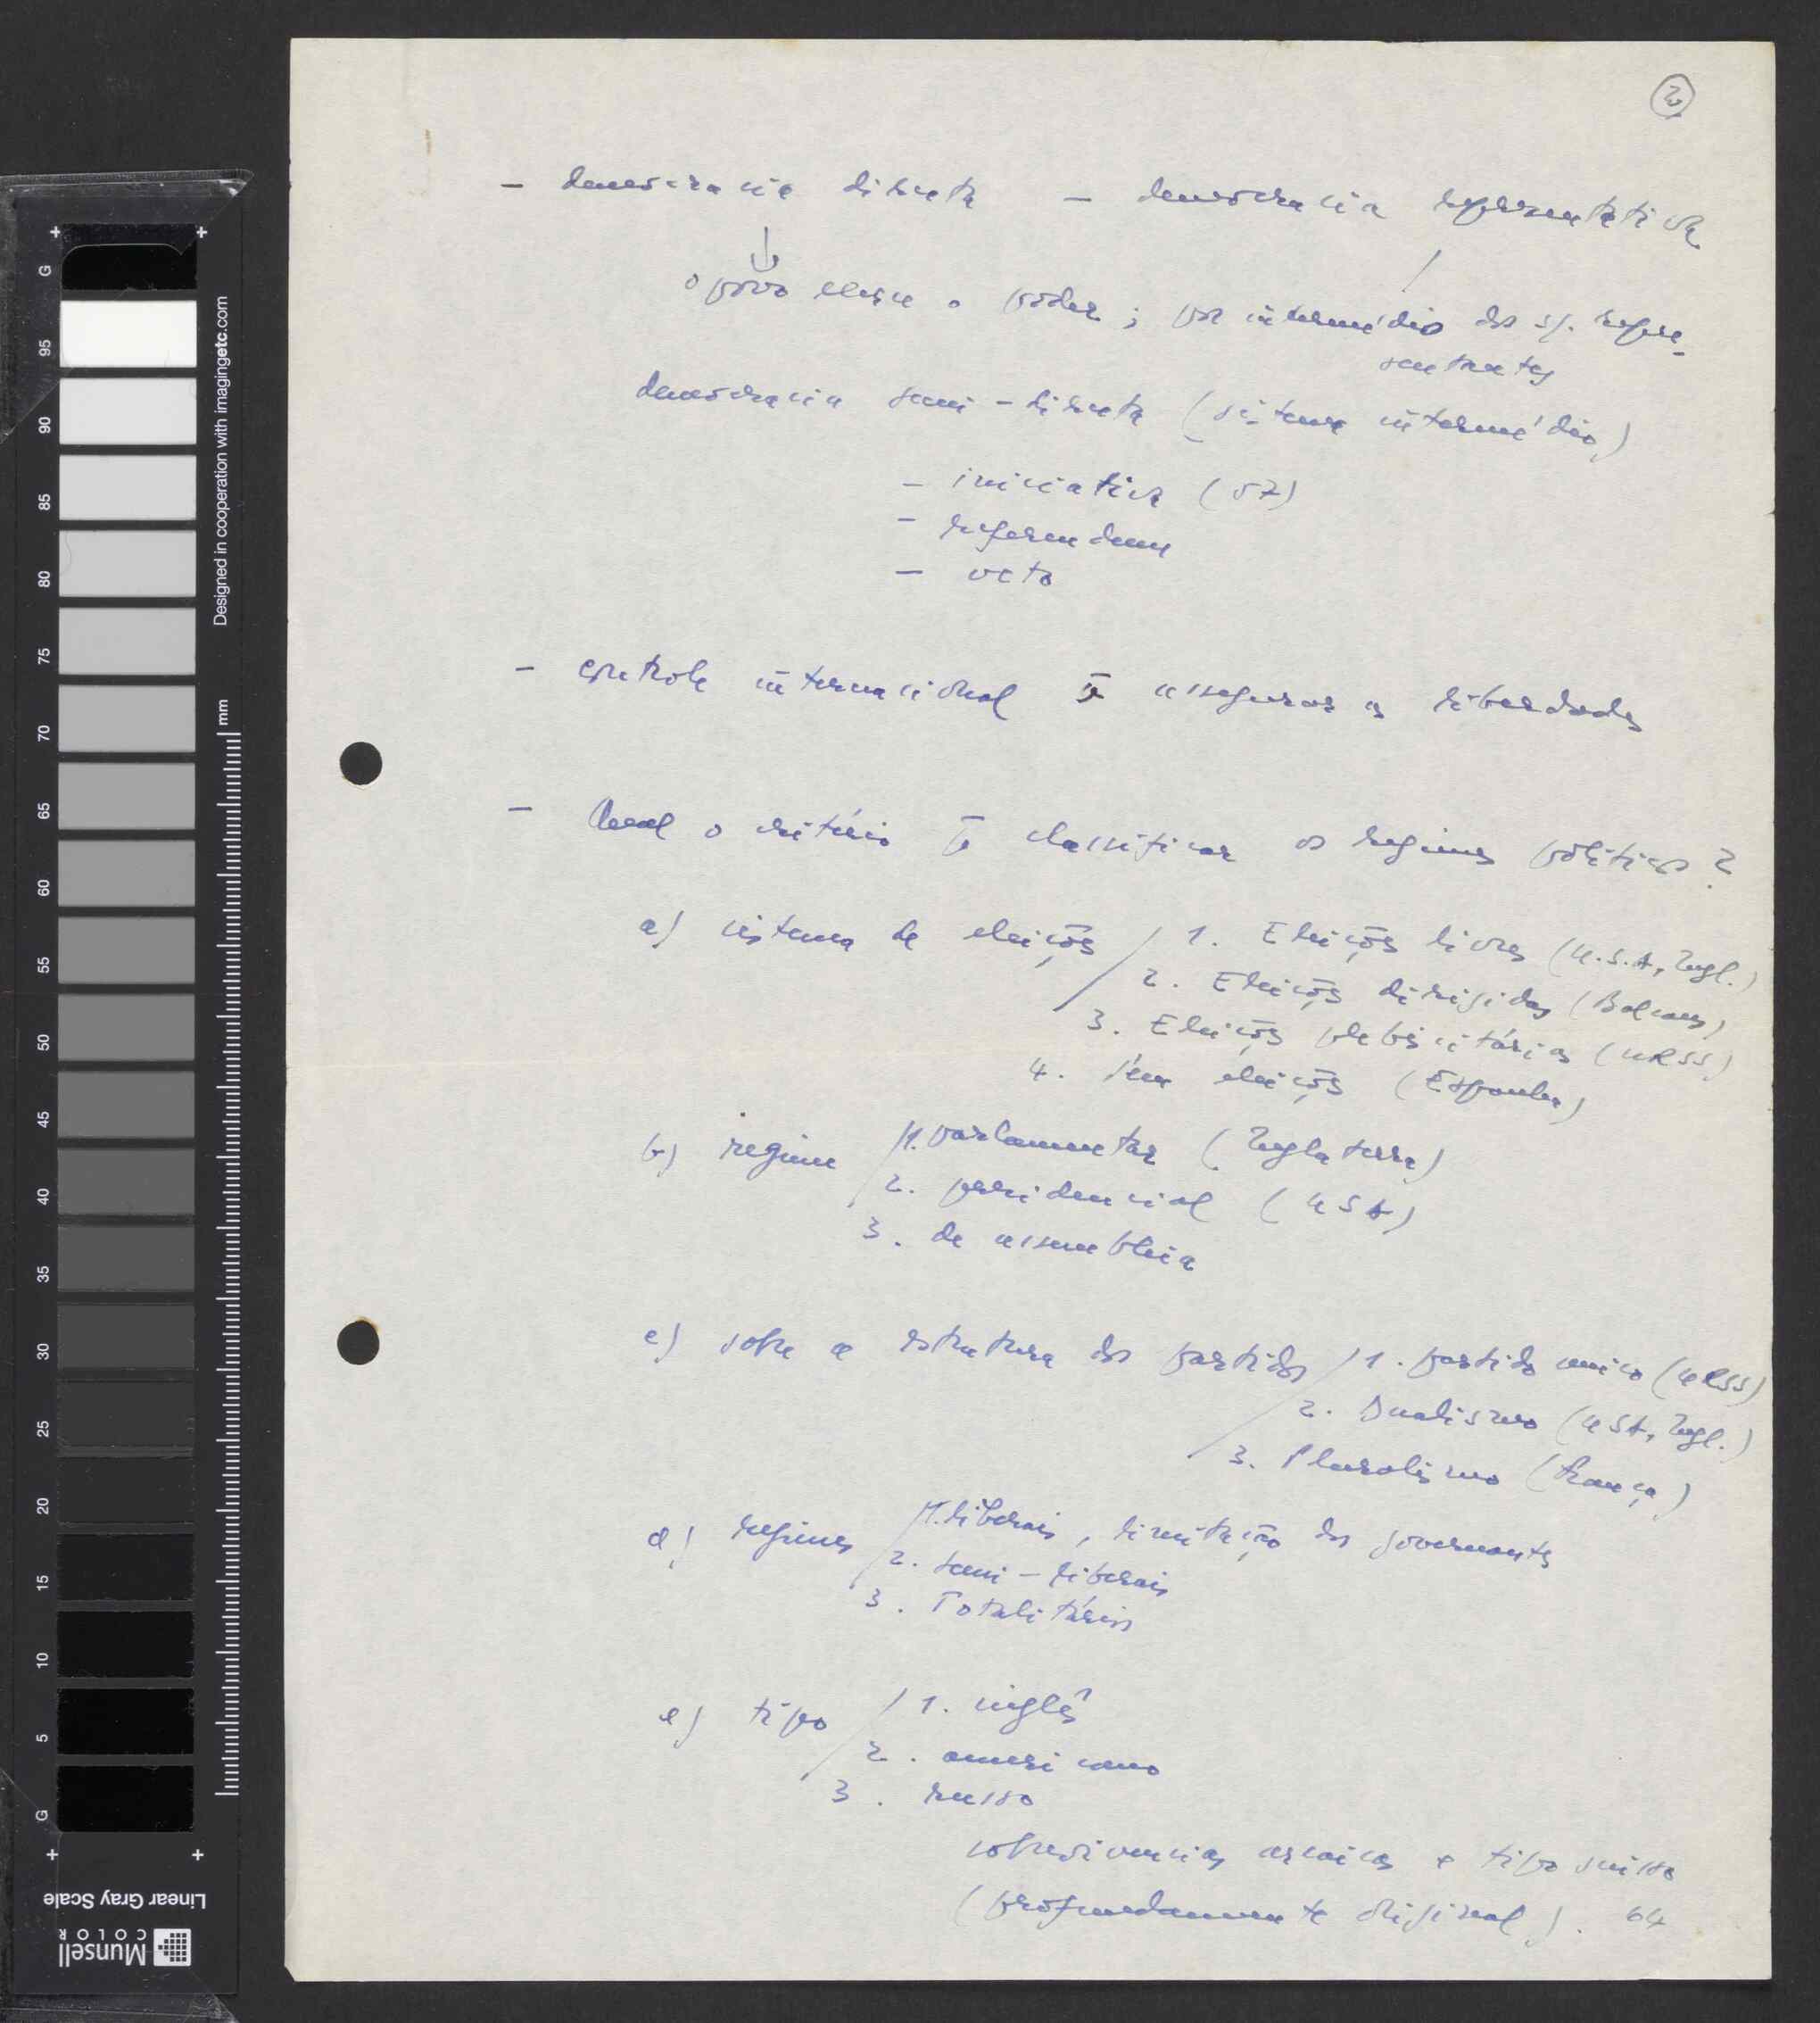 2
- democracia direta - democracia representativa
o povo exerce o poder ; por intermédio dos s/. repre-
sentantes
democracia semi-direta (sistema intermédio)
- iniciativa (57)
- referendum
- veto
- controle internacional p̄ assegurar as liberdades
- Qual o critério p̄ classificar os regimes políticos ?
a) sistema de eleições / 1. Eleições livres (U.S.A, Ingl.)
2. Eleições dirigidas (Balcans)
3. Eleições plebiscitárias (URSS)
4. sem eleições (Espanha)
b) regime / 1. parlamentar (Inglaterra)
2. presidencial (USA)
3. de assembleia
c) sobre a estrutura dos partidos / 1. partido unico (URSS)
2. Dualismo (USA, Ingl.)
3. Pluralismo (França)
d) regimes / 1. liberais, limitação dos governantes
2. semi-liberais
3. Totalitários
e) tipo / 1. inglês
2. americano
3. russo
sobrevivencias arcaicas e tipo suisso
(profundamente original). 64
Designed in cooperation with imagingetc.com
mm
G 95 90 85 80 75 70 65 60 55 50 45 40 35 30 25 20 15 10 5 G
Linear Gray Scale
Munsell
COLOR